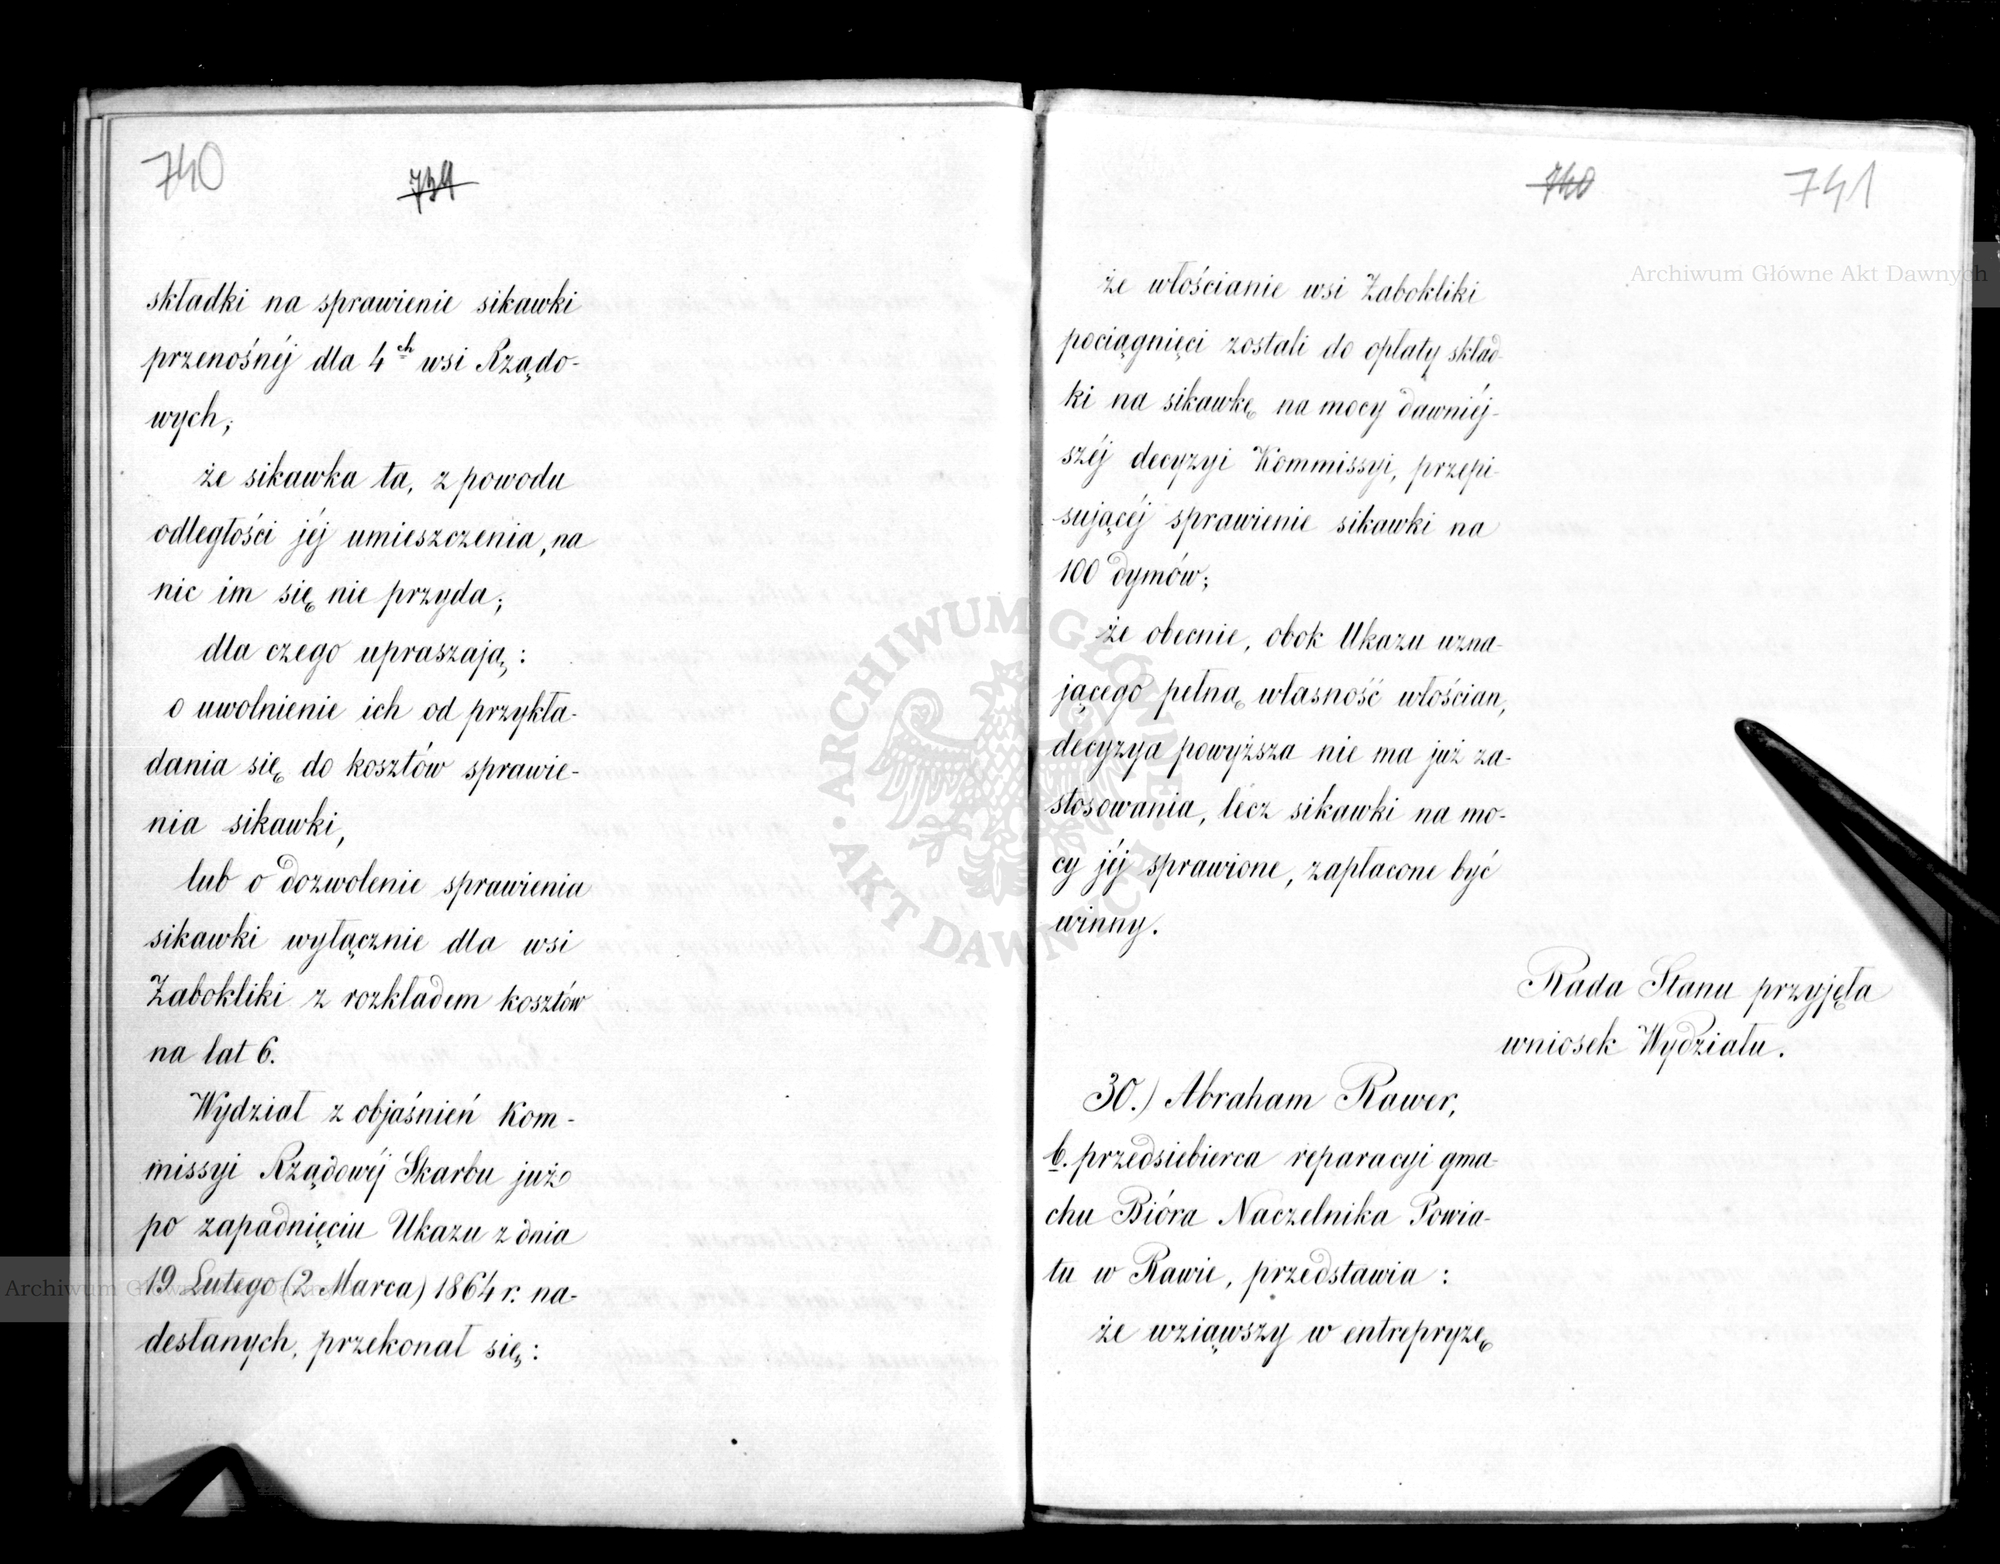 740
739
składki na sprawienie sikawki
przenośnéj dla 4ch wsi Rządo-
wych;
że sikawka ta, z powodu
odległości jéj umieszczenia, na
nic im się nie przyda;
dla czego upraszają:
o uwolnienie ich od przykła-
dania się do kosztów sprawie-
nia sikawki,
lub o dozwolenie sprawienia
sikawki wyłącznie dla wsi
Żabokliki z rozkładem kosztów
na lat 6.
Wydział z objaśnień Kom-
missyi Rządowéj Skarbu już
po zapadnięciu Ukazu z dnia
19 Lutego (2 Marca) 1864 r. na-
desłanych, przekonał się:
740
741
że włościanie wsi Żabokliki
pociągnięci zostali do opłaty skład-
ki na sikawkę na mocy dawniéj-
széj decyzyi Kommissyi, przepi-
sującéj sprawienie sikawki na
100 dymów;
że obecnie, obok Ukazu uzna-
jącego pełną własność włościan,
decyzya powyższa nie ma już za-
stosowania, lecz sikawki na mo-
cy jéj sprawione, zapłacone być
winny.
Rada Stanu przyjęła
wniosek Wydziału.
30.) Abraham Rawer,
b. przedsiebierca reparacyi gma-
chu Bióra Naczelnika Powia-
tu w Rawie, przedstawia:
że wziąwszy w entrepryzę
Archiwum Główne Akt Dawnych
ARCHIWUM GŁÓWNE AKT DAWNYCH